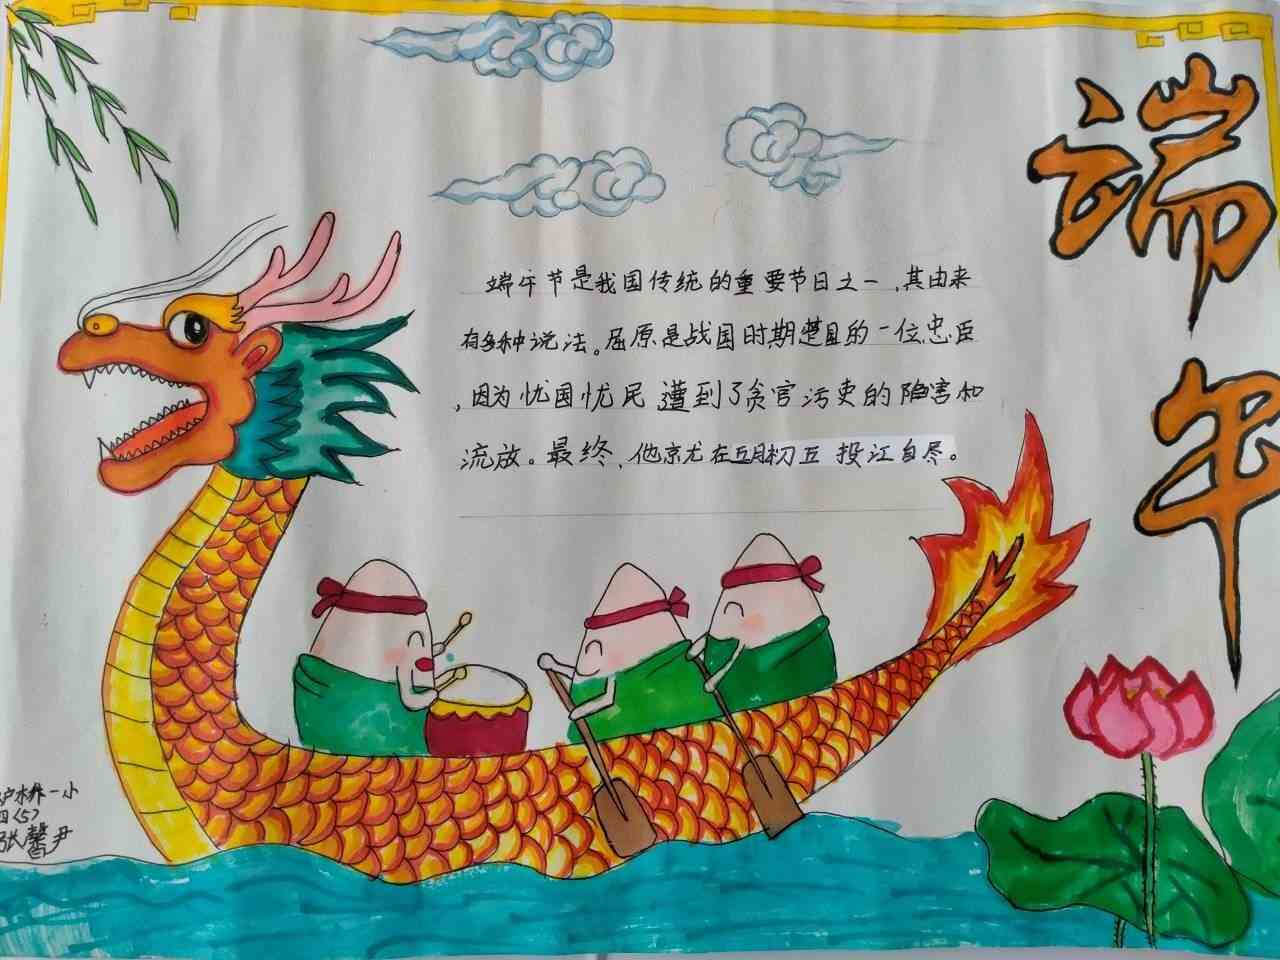 端午
端午节是我国传统的重要节日之一,其由来
有多种说法。屈原是战国时期楚国的一位忠臣
,因为忧国忧民遭到了贪官污吏的陷害和
流放。最终,他就在五月初五投江自尽。
一小
四(5)
张馨尹